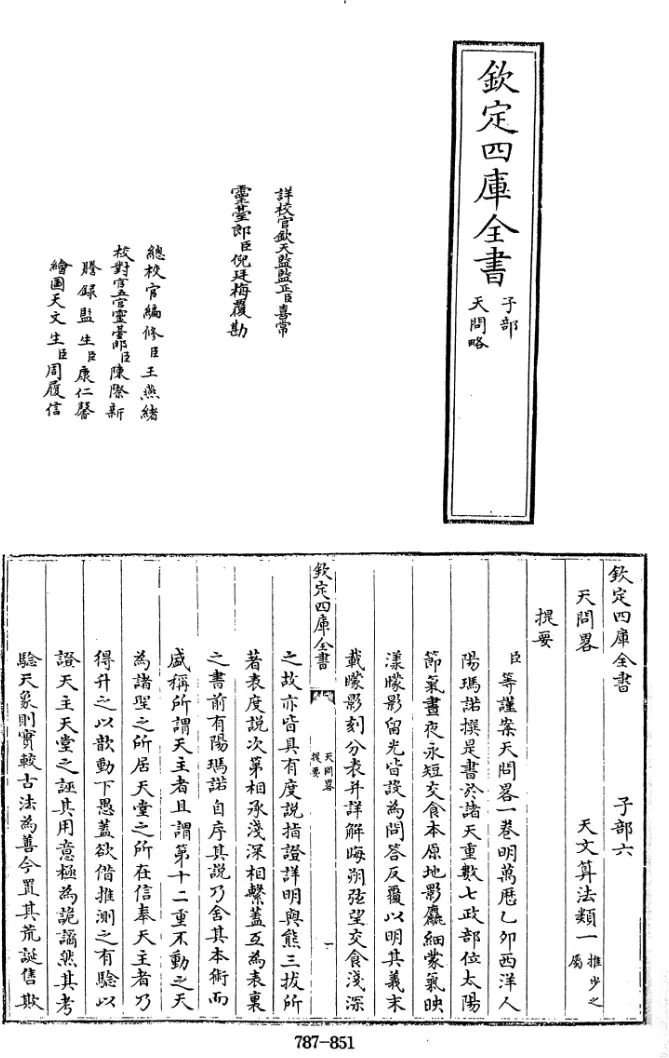 欽定四庫全書
子部
天問略
詳校官欽天監監正臣喜常
靈臺郎臣倪廷梅覆勘
總校官編修臣王燕緒
校對官五官靈臺郎臣陳際新
謄録監生臣康仁馨
繪圖天文生臣周履信
欽定四庫全書
子部六
天問畧
天文算法類一
推步之
屬
提要
臣等謹案天問畧一卷明萬厯乙卯西洋人
陽瑪諾撰是書於諸天重數七政部位太陽
節氣晝夜永短交食本原地影麤細蒙氣映
漾矇影留光皆設為問答反覆以明其義末
載矇影刻分表并詳解晦朔弦望交食淺深
欽定四庫全書
天問畧
提要
一
之故亦皆具有度說指證詳明與熊三拔所
著表度說次第相承淺深相繫蓋互為表裏
之書前有陽瑪諾自序其說乃舍其本術而
盛稱所謂天主者且謂第十二重不動之天
為諸聖之所居天堂之所在信奉天主者乃
得升之以歆動下愚蓋欲借推測之有驗以
證天主天堂之誣其用意極為詭譎然其考
驗天象則實較古法為善今置其荒誕售欺
787-851